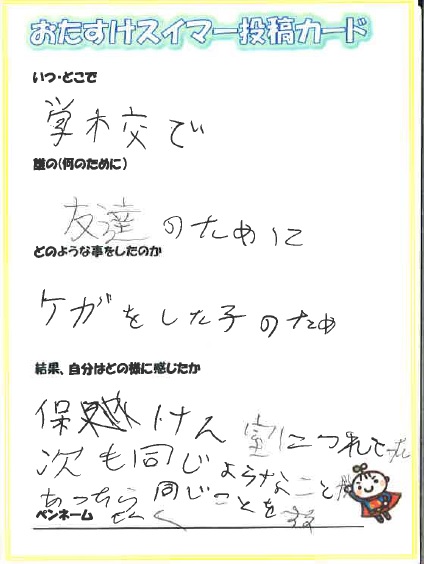 おたすけスイマー投稿カード
いつ・どこで
学校で
誰の(何のために)
友達のために
どのような事をしたのか
ケガをした子のため
結果、自分はどの様に感じたか
保 けん室につれて
次も同じようなことが
あったら同じことを
ペンネーム